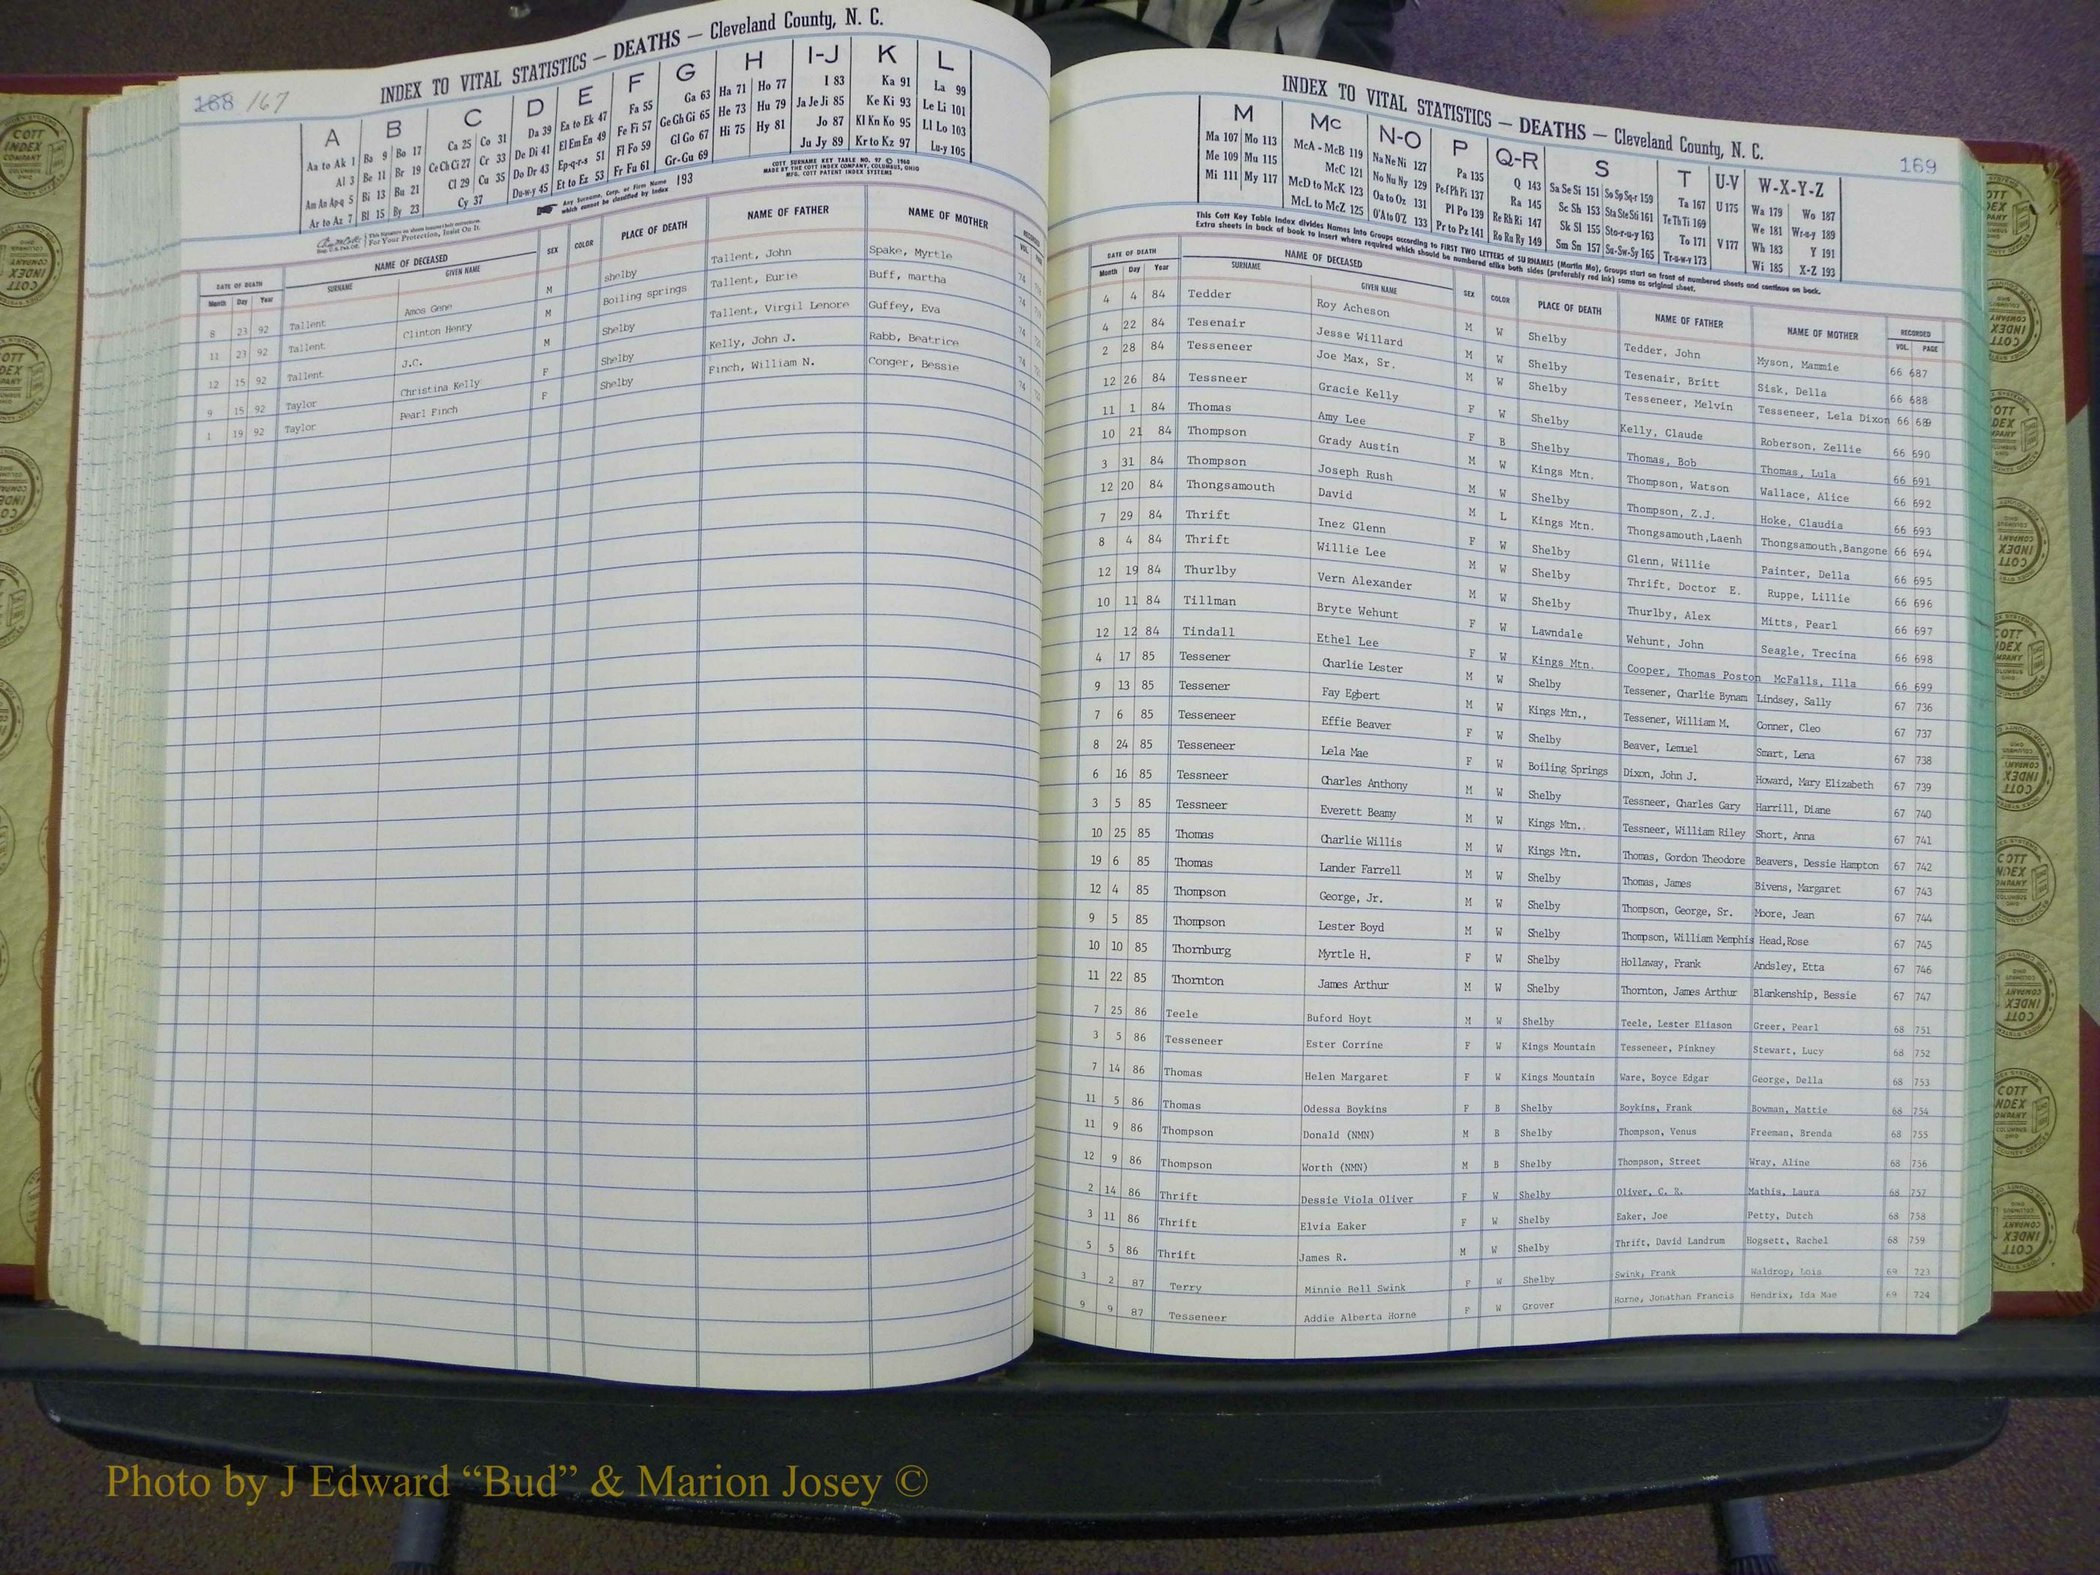 168 167
INDEX TO VITAL STATISTICS — DEATHS — Cleveland County, N. C.
A B C D E F G H I-J K L
Aa to Ak 1 Ba 9 Bo 17 Ca 25 Co 31 Da 39 Ea to Ek 47 Fa 55 Ga 63 Ha 71 Ho 77 I 83 Ka 91 La 99
Al 3 Be 11 Br 19 Ce Ch Ci 27 Cr 33 De Di 41 El Em En 49 Fe Fi 57 Ge Gh Gi 65 He 73 Hu 79 Ja Je Ji 85 Ke Ki 93 Le Li 101
Am An Ap-q 5 Bi 13 Bu 21 Cl 29 Cu 35 Do Dr 43 Ep-q-r-s 51 Fl Fo 59 Gl Go 67 Hi 75 Hy 81 Jo 87 Kl Kn Ko 95 Ll Lo 103
Ar to Az 7 Bl 15 By 23 Cy 37 Du-w-y 45 Et to Ez 53 Fr Fu 61 Gr-Gu 69 Ju Jy 89 Kr to Kz 97 Lu-y 105
Any Surname, Corp. or Firm Name which cannot be classified by Index 193
COTT SURNAME KEY TABLE NO. 97 © 1960
MADE BY THE COTT INDEX COMPANY, COLUMBUS, OHIO
MFG. COTT PATENT INDEX SYSTEMS
For Your Protection, Insist On It.
DATE OF DEATH NAME OF DECEASED SEX COLOR PLACE OF DEATH NAME OF FATHER NAME OF MOTHER RECORDED
Month Day Year SURNAME GIVEN NAME VOL. PAGE
8 23 92 Tallent Amos Gene M shelby Tallent, John Spake, Myrtle 74
11 23 92 Tallent Clinton Henry M Boiling springs Tallent, Eurie Buff, martha 74
12 15 92 Tallent J.C. M Shelby Tallent, Virgil Lenore Guffey, Eva 74
9 15 92 Taylor Christina Kelly F Shelby Kelly, John J. Rabb, Beatrice 74
1 19 92 Taylor Pearl Finch F Shelby Finch, William N. Conger, Bessie 74
INDEX TO VITAL STATISTICS — DEATHS — Cleveland County, N. C.
169
M Mc N-O P Q-R S T U-V W-X-Y-Z
Ma 107 Mo 113 McA - McB 119 Na Ne Ni 127 Pa 135 Q 143 Sa Se Si 151 So Sp Sq-r 159 Ta 167 U 175 Wa 179 Wo 187
Me 109 Mu 115 McC 121 No Nu Ny 129 Pe-f Ph Pi 137 Ra 145 Sc Sh 153 Sta Ste Sti 161 Te Th Ti 169 We 181 Wr-u-y 189
Mi 111 My 117 McD to McK 123 Oa to Oz 131 Pl Po 139 Re Rh Ri 147 Sk Sl 155 Sto-r-u-y 163 To 171 V 177 Wh 183 Y 191
McL to McZ 125 O'A to O'Z 133 Pr to Pz 141 Ro Ru Ry 149 Sm Sn 157 Su-Sw-Sy 165 Tr-u-w-y 173 Wi 185 X-Z 193
This Cott Key Table Index divides Names into Groups according to FIRST TWO LETTERS of SURNAMES (Martin Ma), Groups start on front of numbered sheets and continue on back.
Extra sheets in back of book to insert where required which should be numbered alike both sides (preferably red ink) same as original sheet.
DATE OF DEATH NAME OF DECEASED SEX COLOR PLACE OF DEATH NAME OF FATHER NAME OF MOTHER RECORDED
Month Day Year SURNAME GIVEN NAME VOL. PAGE
4 4 84 Tedder Roy Acheson M W Shelby Tedder, John Myson, Mammie 66 687
4 22 84 Tesenair Jesse Willard M W Shelby Tesenair, Britt Sisk, Della 66 688
2 28 84 Tesseneer Joe Max, Sr. M W Shelby Tesseneer, Melvin Tesseneer, Lela Dixon 66 689
12 26 84 Tessneer Gracie Kelly F W Shelby Kelly, Claude Roberson, Zellie 66 690
11 1 84 Thomas Amy Lee F B Shelby Thomas, Bob Thomas, Lula 66 691
10 21 84 Thompson Grady Austin M W Kings Mtn. Thompson, Watson Wallace, Alice 66 692
3 31 84 Thompson Joseph Rush M W Shelby Thompson, Z.J. Hoke, Claudia 66 693
12 20 84 Thongsamouth David M L Kings Mtn. Thongsamouth,Laenh Thongsamouth,Bangone 66 694
7 29 84 Thrift Inez Glenn F W Shelby Glenn, Willie Painter, Della 66 695
8 4 84 Thrift Willie Lee M W Shelby Thrift, Doctor E. Ruppe, Lillie 66 696
12 19 84 Thurlby Vern Alexander M W Shelby Thurlby, Alex Mitts, Pearl 66 697
10 11 84 Tillman Bryte Wehunt F W Lawndale Wehunt, John Seagle, Trecina 66 698
12 12 84 Tindall Ethel Lee F W Kings Mtn. Cooper, Thomas Poston McFalls, Illa 66 699
4 17 85 Tessener Charlie Lester M W Shelby Tessener, Charlie Bynam Lindsey, Sally 67 736
9 13 85 Tessener Fay Egbert M W Kings Mtn., Tessener, William M. Conner, Cleo 67 737
7 6 85 Tesseneer Effie Beaver F W Shelby Beaver, Lemuel Smart, Lena 67 738
8 24 85 Tesseneer Lela Mae F W Boiling Springs Dixon, John J. Howard, Mary Elizabeth 67 739
6 16 85 Tessneer Charles Anthony M W Shelby Tessneer, Charles Gary Harrill, Diane 67 740
3 5 85 Tessneer Everett Beamy M W Kings Mtn. Tessneer, William Riley Short, Anna 67 741
10 25 85 Thomas Charlie Willis M W Kings Mtn. Thomas, Gordon Theodore Beavers, Dessie Hampton 67 742
19 6 85 Thomas Lander Farrell M W Shelby Thomas, James Bivens, Margaret 67 743
12 4 85 Thompson George, Jr. M W Shelby Thompson, George, Sr. Moore, Jean 67 744
9 5 85 Thompson Lester Boyd M W Shelby Thompson, William Memphis Head,Rose 67 745
10 10 85 Thornburg Myrtle H. F W Shelby Hollaway, Frank Andsley, Etta 67 746
11 22 85 Thornton James Arthur M W Shelby Thornton, James Arthur Blankenship, Bessie 67 747
7 25 86 Teele Buford Hoyt M W Shelby Teele, Lester Eliason Greer, Pearl 68 751
3 5 86 Tesseneer Ester Corrine F W Kings Mountain Tesseneer, Pinkney Stewart, Lucy 68 752
7 14 86 Thomas Helen Margaret F W Kings Mountain Ware, Boyce Edgar George, Della 68 753
11 5 86 Thomas Odessa Boykins F B Shelby Boykins, Frank Bowman, Mattie 68 754
11 9 86 Thompson Donald (NMN) M B Shelby Thompson, Venus Freeman, Brenda 68 755
12 9 86 Thompson Worth (NMN) M B Shelby Thompson, Street Wray, Aline 68 756
2 14 86 Thrift Dessie Viola Oliver F W Shelby Oliver, C. R. Mathis, Laura 68 757
3 11 86 Thrift Elvia Eaker F W Shelby Eaker, Joe Petty, Dutch 68 758
5 5 86 Thrift James R. M W Shelby Thrift, David Landrum Hogsett, Rachel 68 759
3 2 87 Terry Minnie Bell Swink F W Shelby Swink, Frank Waldrop, Lois 69 723
9 9 87 Tesseneer Addie Alberta Horne F W Grover Horne, Jonathan Francis Hendrix, Ida Mae 69 724
Photo by J Edward “Bud” & Marion Josey ©